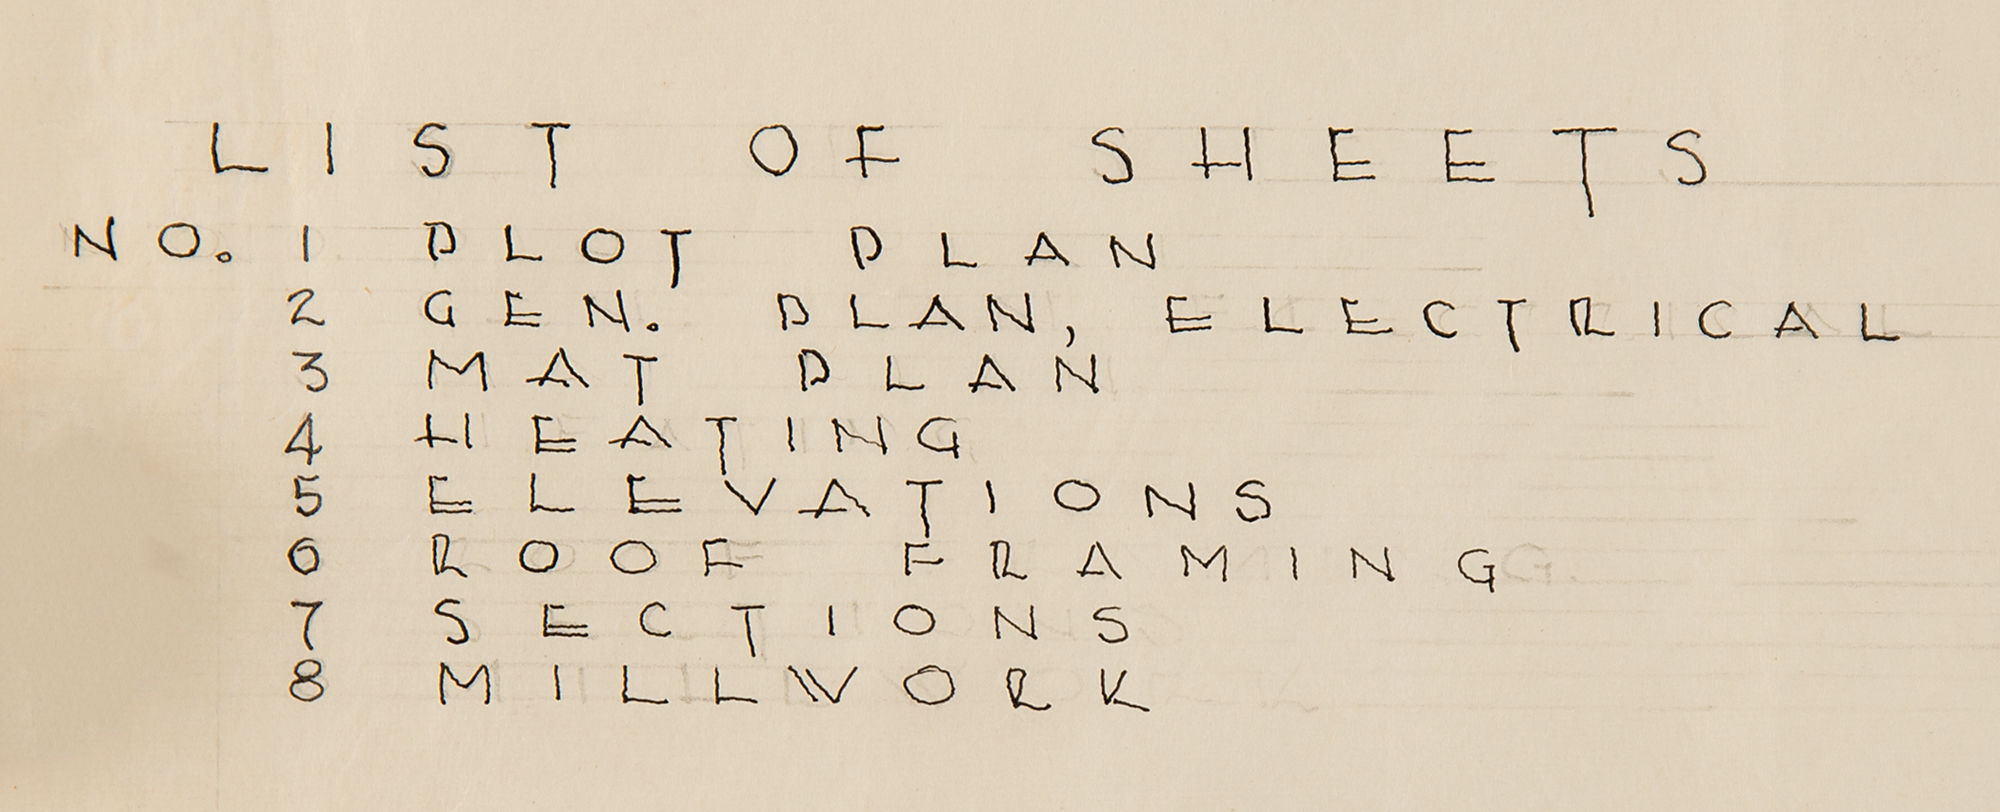 LIST OF SHEETS
NO. 1 PLOT PLAN
2 GEN. PLAN, ELECTRICAL
3 MAT PLAN
4 HEATING
5 ELEVATIONS
6 ROOF FRAMING
7 SECTIONS
8 MILLWORK